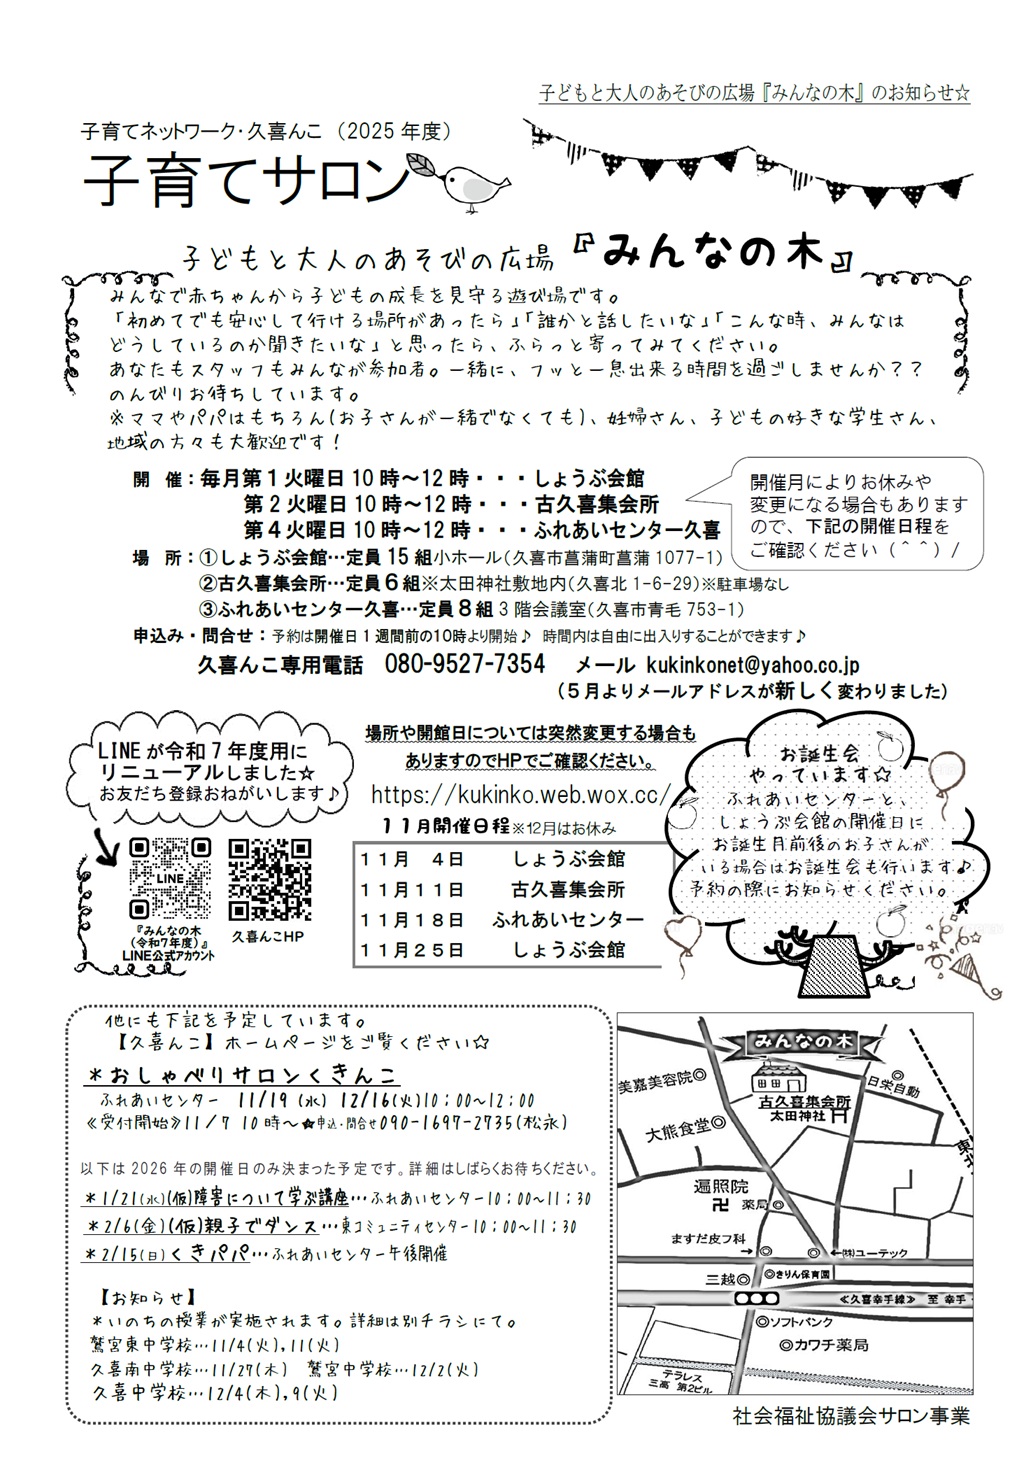 子どもと大人のあそびの広場『みんなの木』のお知らせ☆
子育てネットワーク・久喜んこ （2025 年度）
子育てサロン
子どもと大人のあそびの広場 『みんなの木』
みんなで赤ちゃんから子どもの成長を見守る遊び場です。
「初めてでも安心して行ける場所があったら」「誰かと話したいな」「こんな時、みんなは
どうしているのか聞きたいな」と思ったら、ふらっと寄ってみてください。
あなたもスタッフもみんなが参加者。一緒に、フッと一息出来る時間を過ごしませんか？？
のんびりお待ちしています。
※ママやパパはもちろん(お子さんが一緒でなくても)、妊婦さん、子どもの好きな学生さん、
地域の方々も大歓迎です！
開 催：毎月第１火曜日 10 時～12 時・・・しょうぶ会館
第２火曜日 10 時～12 時・・・古久喜集会所
第４火曜日 10 時～12 時・・・ふれあいセンター久喜
開催月によりお休みや
変更になる場合もあります
ので、下記の開催日程を
ご確認ください（＾＾）/
場 所：①しょうぶ会館…定員 15 組小ホール（久喜市菖蒲町菖蒲 1077-1）
②古久喜集会所…定員６組※太田神社敷地内（久喜北 1-6-29）※駐車場なし
③ふれあいセンター久喜…定員８組 3 階会議室（久喜市青毛 753-1）
申込み・問合せ：予約は開催日１週間前の10時より開始♪ 時間内は自由に出入りすることができます♪
久喜んこ専用電話 080-9527-7354 メール kukinkonet@yahoo.co.jp
（５月よりメールアドレスが新しく変わりました）
LINE が令和７年度用に
リニューアルしました☆
お友だち登録おねがいします♪
LINE
『みんなの木
（令和7年度）』
LINE公式アカウント
久喜んこHP
場所や開館日については突然変更する場合も
ありますのでHPでご確認ください。
https://kukinko.web.wox.cc/
１１月開催日程※12月はお休み
１１月　４日　しょうぶ会館
１１月１１日　古久喜集会所
１１月１８日　ふれあいセンター
１１月２５日　しょうぶ会館
お誕生会
やっています☆
ふれあいセンターと、
しょうぶ会館の開催日に
お誕生月前後のお子さんが
いる場合はお誕生会も行います♪
予約の際にお知らせください。
他にも下記を予定しています。
【久喜んこ】ホームページをご覧ください☆
＊おしゃべりサロンくきんこ
ふれあいセンター 11/19（水）12/16(火)10：00～12：00
《受付開始》11／7 10 時～★申込・問合せ090-1697-2735(松永)
以下は 2026 年の開催日のみ決まった予定です。詳細はしばらくお待ちください。
＊1/21(水)(仮)障害について学ぶ講座…ふれあいセンター10：00～11：30
＊2/6(金)(仮)親子でダンス…東コミュニティセンター10：00～11：30
＊2/15(日)くきパパ…ふれあいセンター午後開催
【お知らせ】
＊いのちの授業が実施されます。詳細は別チラシにて。
鷲宮東中学校…11/4(火),11(火)
久喜南中学校…11/27(木) 鷲宮中学校…12/2(火)
久喜中学校…12/4(木),9(火)
みんなの木
美嘉美容院◎
古久喜集会所
太田神社
日栄自動
大熊食堂◎
東北
遍照院
卍 薬局◎
ますだ皮フ科
→◎ ◎←㈱ユーテック
三越◎ ◎きりん保育園
≪久喜幸手線≫ 至 幸手
◎ソフトバンク
◎カワチ薬局
テラレス
三高 第2ビル
社会福祉協議会サロン事業